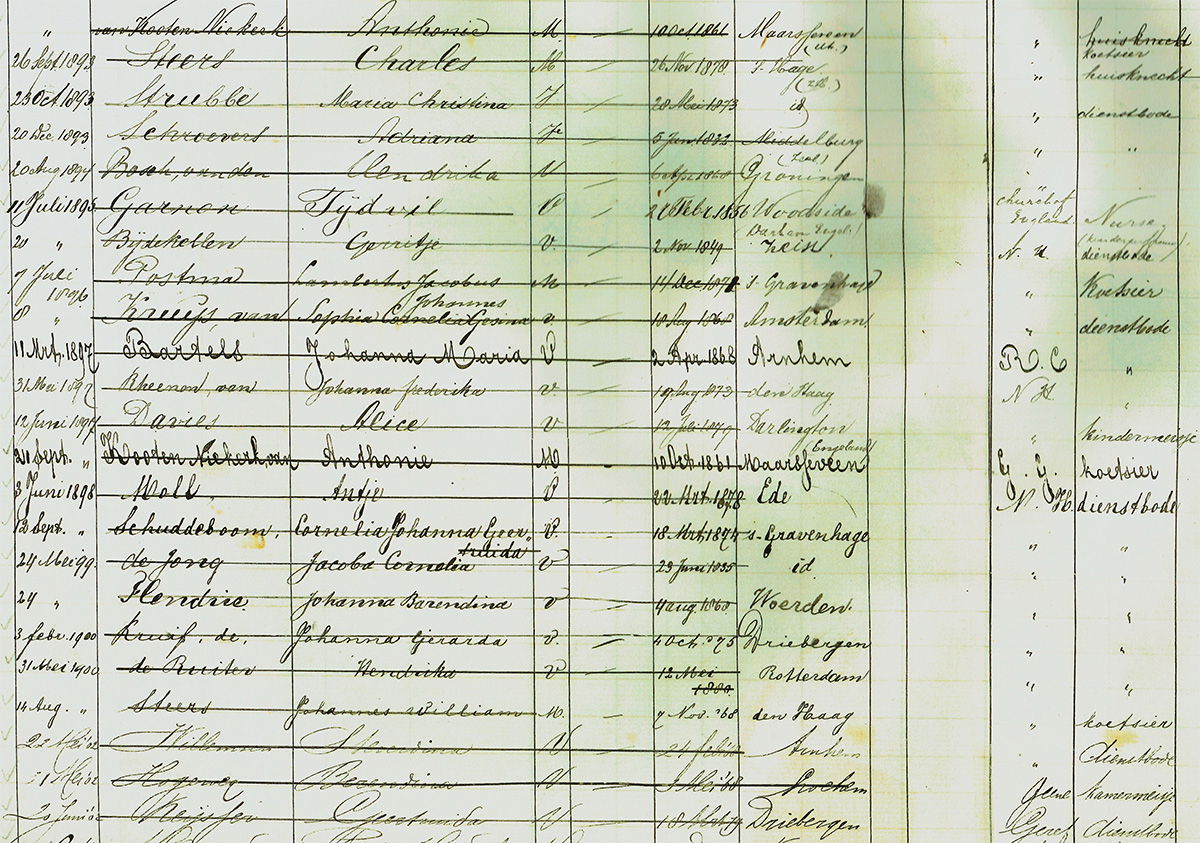 " van Kooten Niekerk Anthonie M — 10 Oct 1861 Maarsseveen " huisknecht
(Ut.) koetsier
26 Sept 1893 Steers Charles M — 26 Nov 1878 s-Hage " huisknecht
(zH.)
23 Oct 1893 Strubbe Maria Christina — 28 Mei 1873 id " dienstbode
20 Dec. 1893 Schroevers Adriana — 5 Jan 1833 Middelburg " "
(Zeel)
20 Aug 1894 Bosch, van den Hendrika V — 6 Apr 1868 Groningen
11 Juli 1895 Garnon Tydvil V 21 Febr 1856 Woodside Church of England Nurse
20 " Bijdekellen Gerritje V. — 2 Nov 1849 Zein N. H. dienstbode
7 Juli 1896 Postma Lambertus Jacobus M — 14 Dec 1871 s-Gravenhage " Koetsier
Johannes
8 " Kruijs, van Sophia Cornelia Gesina v — 18 Aug 1860 Amsterdam " dienstbode
11 Mrt. 1897 Bartels Johanna Maria V — 2 Apr 1868 Arnhem R. C "
31 Mei 1897 Rheenen, van Johanna frederika v. — 19 Aug 1873 den Haag N H "
12 Juni 1897 Davies Alice v — 12 Juli 1879 Darlington " kindermeisje
Engeland
21 Sept. " Kooten Niekerk van Anthonie M — 10 Oct. 1861 Maarsseveen G. G. koetsier
3 Juni 1898 Moll Antje V — 22 Mrt. 1878 Ede N. H. dienstbode
12 Sept. " Schuddeboom, Cornelia Johanna Geer- V. — 18 Mrt. 1874 s-Gravenhage " "
truida
24 Mei 99 de Jong Jacoba Cornelia V — 23 Juni 1835 id "
24 " Flendrie Johanna Barendina v — 4 aug. 1860 Woerden. " "
3 febr. 1900 Kruif, de, Johanna Gerarda v. — 4 Oct. '75 Driebergen " "
31 Mei 1900 de Ruiter Hendrika V — 12 Mei Rotterdam " "
1880
14 Aug. " Steers Johannes William M. — 7 Nov. '68 den Haag " koetsier
Willemsen V Arnhem " dienstbode
Hogeweg Berendina V — Mei '68 Lochem Geene kamermeisje
Geertruida V — Driebergen Geref dienstbode